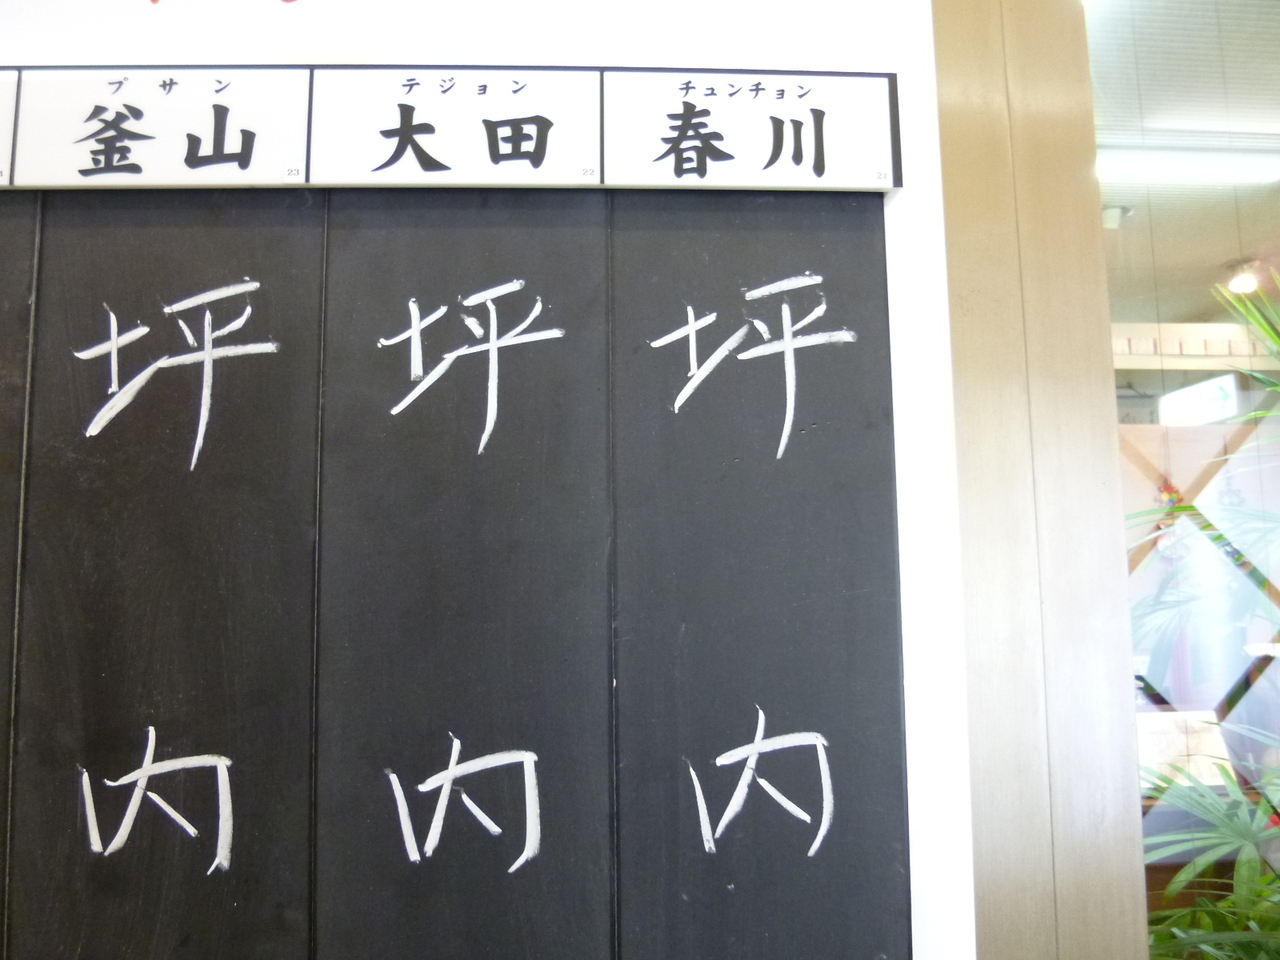 プサン
釜山
23
テジョン
大田
22
チュンチョン
春川
21
坪内
坪内
坪内